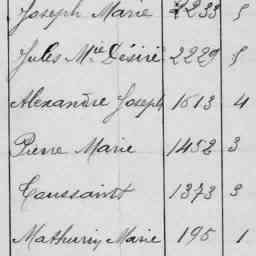 Joseph Marie 2233 5
Jules Mie Désiré 2229 5
Alexandre Joseph 1613 4
Pierre Marie 1452 3
Toussaint 1373 3
Mathurin Marie 195 1